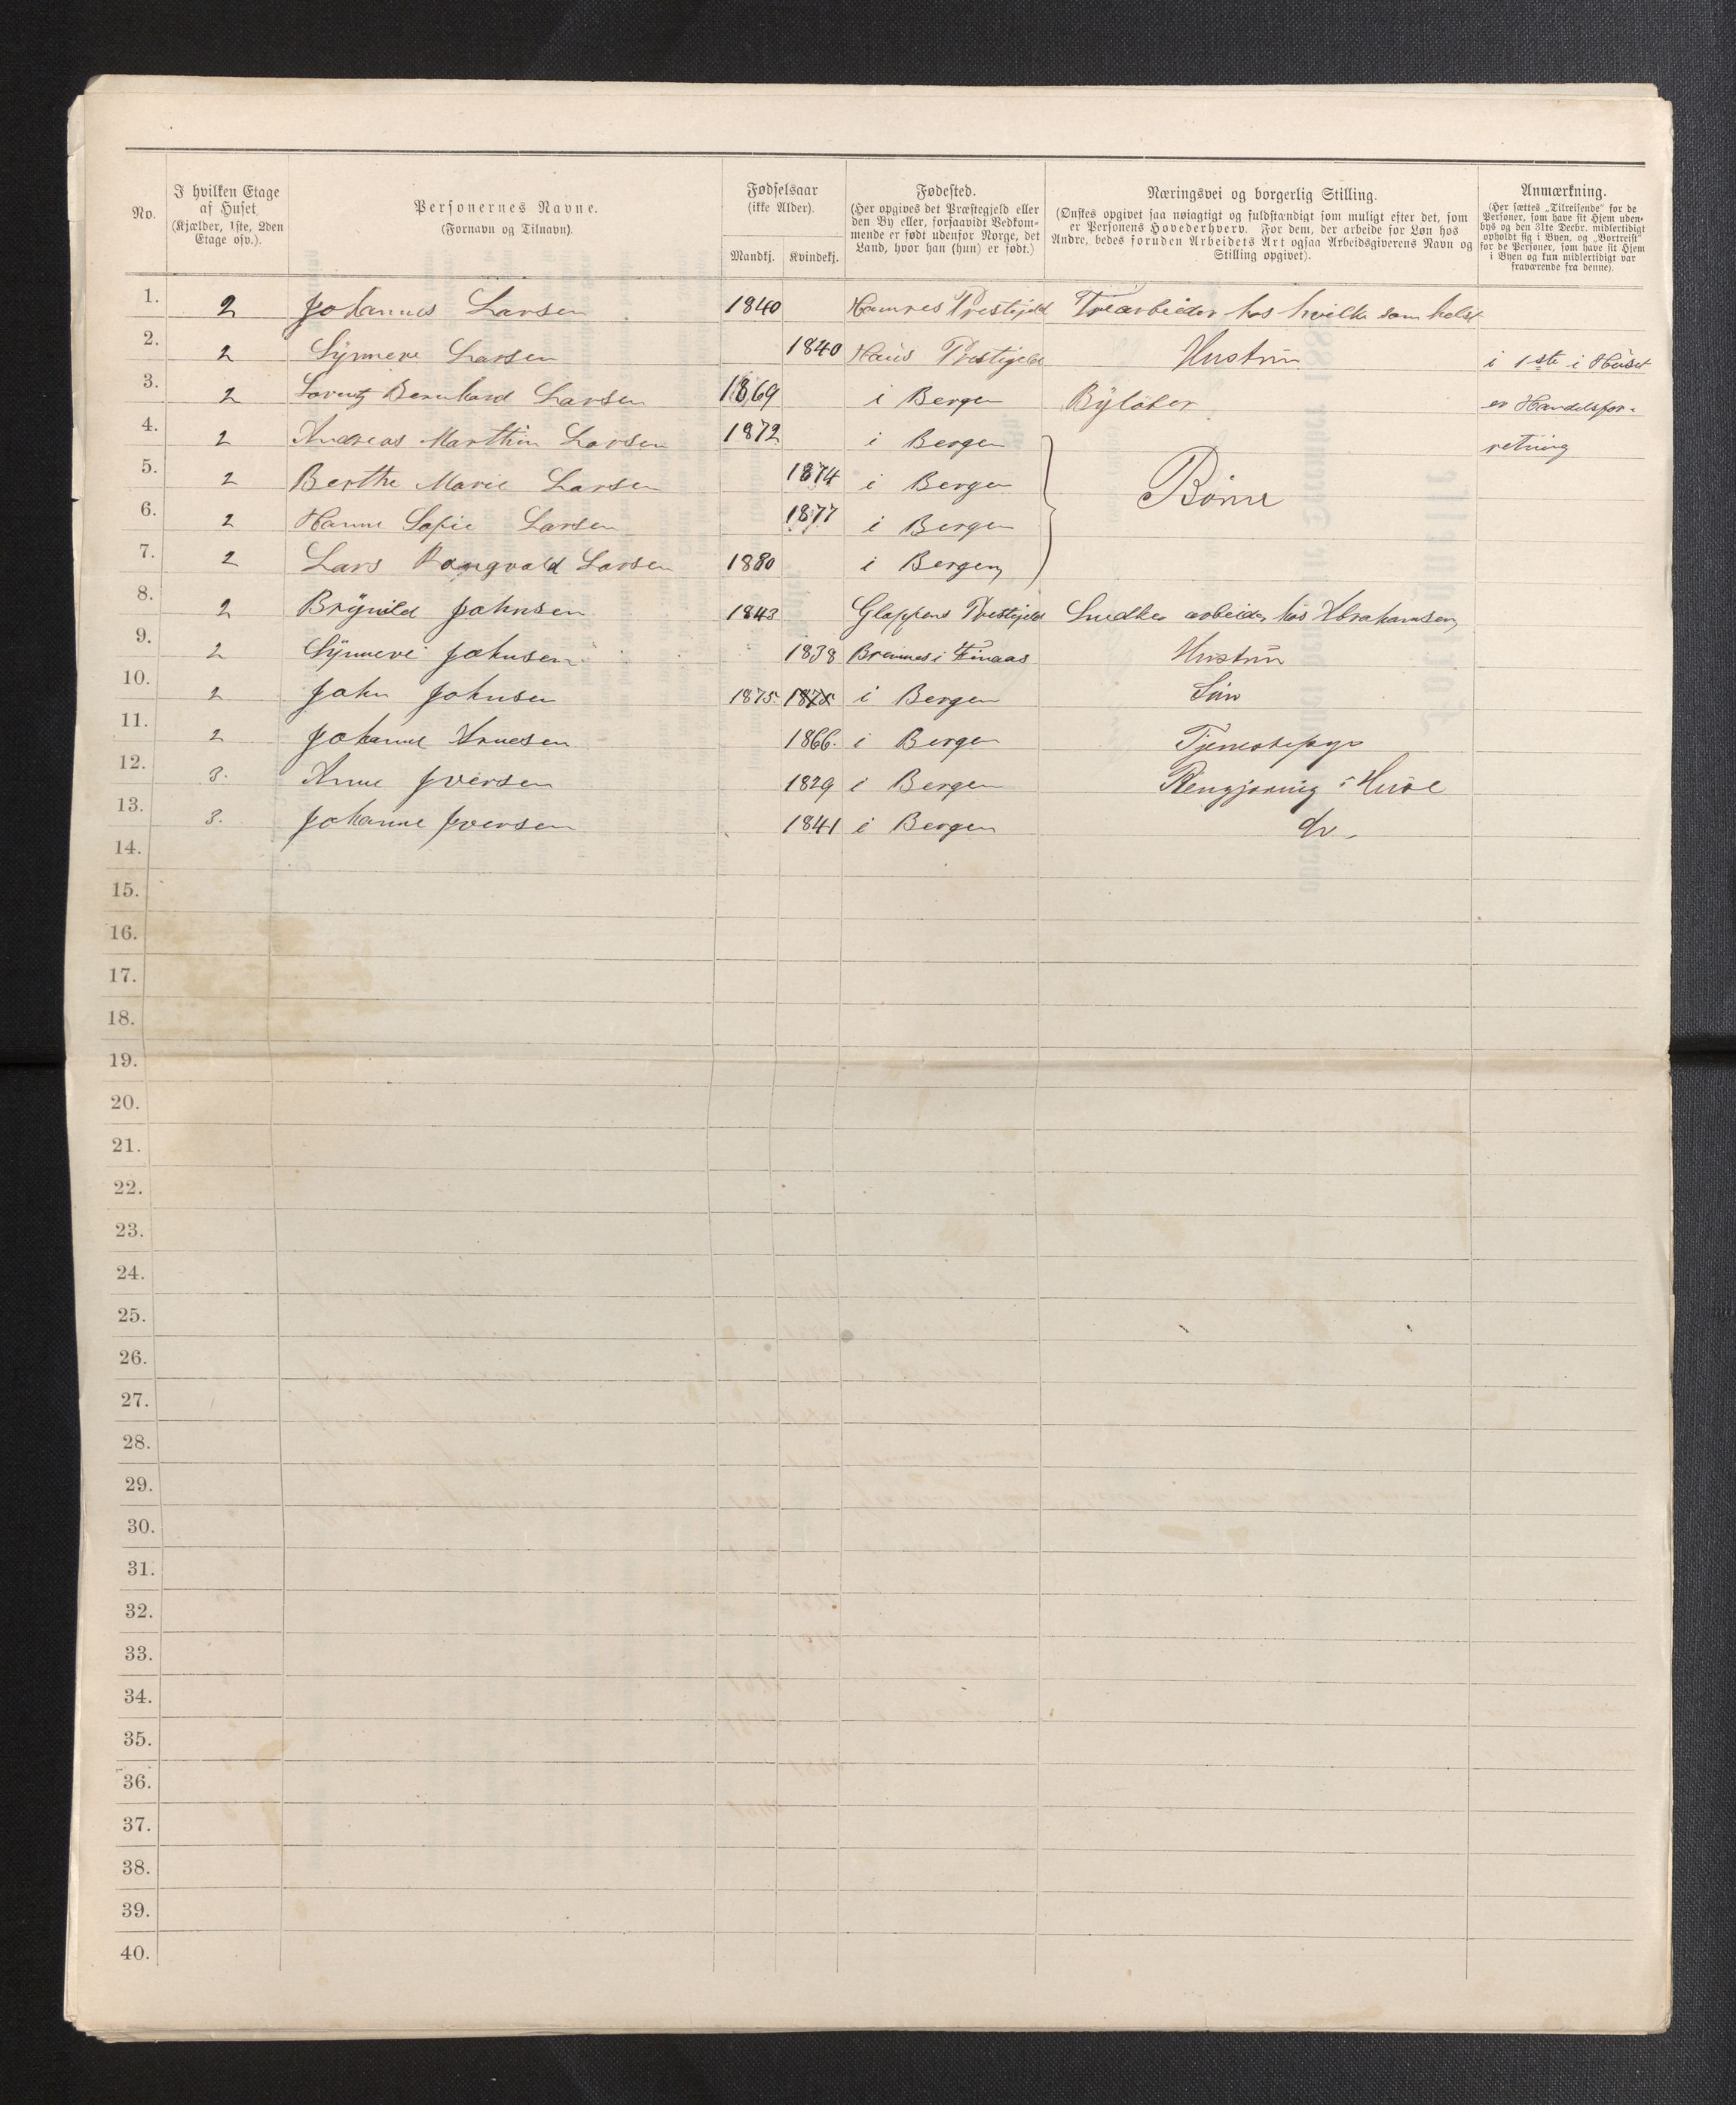 No.
I hvilken Etage af Huset (Kjælder, 1ste, 2den Etage osv.).
Personernes Navne.
(Fornavn og Tilnavn).
Fødselsaar
(ikke Alder).
Mandkj. Kvindekj.
Fødested.
(Her opgives det Præstegjeld eller
den By eller, forsaavidt Vedkom-
mende er født udenfor Norge, det
Land, hvor han (hun) er født.)
Næringsvei og borgerlig Stilling.
(Ønskes opgivet saa nøiagtigt og fuldstændigt som muligt efter det, som
er Personens Hovederhverv. For dem, der arbeide for Løn hos
Andre, bedes foruden Arbeidets Art ogsaa Arbeidsgiverens Navn og
Stilling opgivet).
Anmærkning.
(Her sættes „Tilreisende" for de
Personer, som have sit Hjem uden-
bys og den 31te Decbr. midlertidigt
opholdt sig i Byen, og „Bortreist"
for de Personer, som have sit Hjem
i Byen og kun midlertidigt var
fraværende fra denne).
1. 2 Johannes Larsen 1840 Hamres Prestigjeld Træarbeider hos hvilke som helst
2. 2 Synneve Larsen 1840 Haus Prestigjeld Hustru i 1ste i Huset
3. 2 Lorentz Bernhard Larsen 1869 i Bergen Byløber er Handelsfor-
4. 2 Andreas Marthin Larsen 1872 i Bergen retning
5. 2 Berthe Marie Larsen 1874 i Bergen Børne
6. 2 Hanne Sofie Larsen 1877 i Bergen
7. 2 Lars Rangvald Larsen 1880 i Bergen
8. 2 Brynild Johnsen 1843 Prestigjeld arbeider hos Abrahamsen
9. 2 Synneve Johnsen 1838 Bremnes i Finaas Hustru
10. 2 John Johnsen 1875 1875 i Bergen Søn
11. 2 Johanne Arnesen 1866. i Bergen Tjenestepige
12. 3. Anne Iversen 1829 i Bergen Rengjøring i Huse
13. 3. Johanne Iversen 1841 i Bergen do
14.
15.
16.
17.
18.
19.
20.
21.
22.
23.
24.
25.
26.
27.
28.
29.
30.
31.
32.
33.
34.
35.
36.
37.
38.
39.
40.